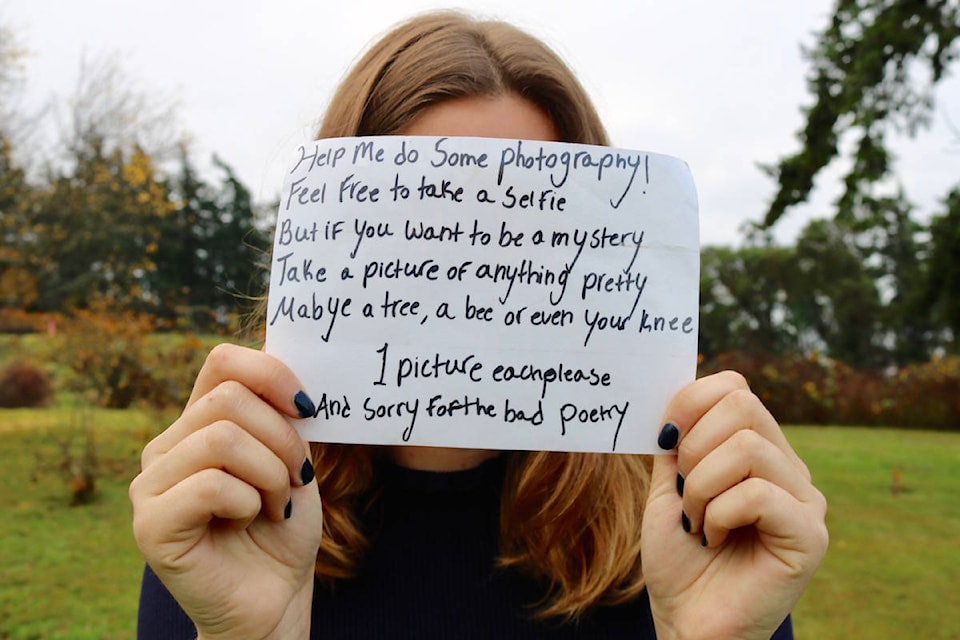 Help Me do Some photography!
Feel Free to take a Selfie
But if you want to be a mystery
Take a picture of anything pretty
Mabye a tree, a bee or even your knee
1 picture each please
And sorry for the bad poetry